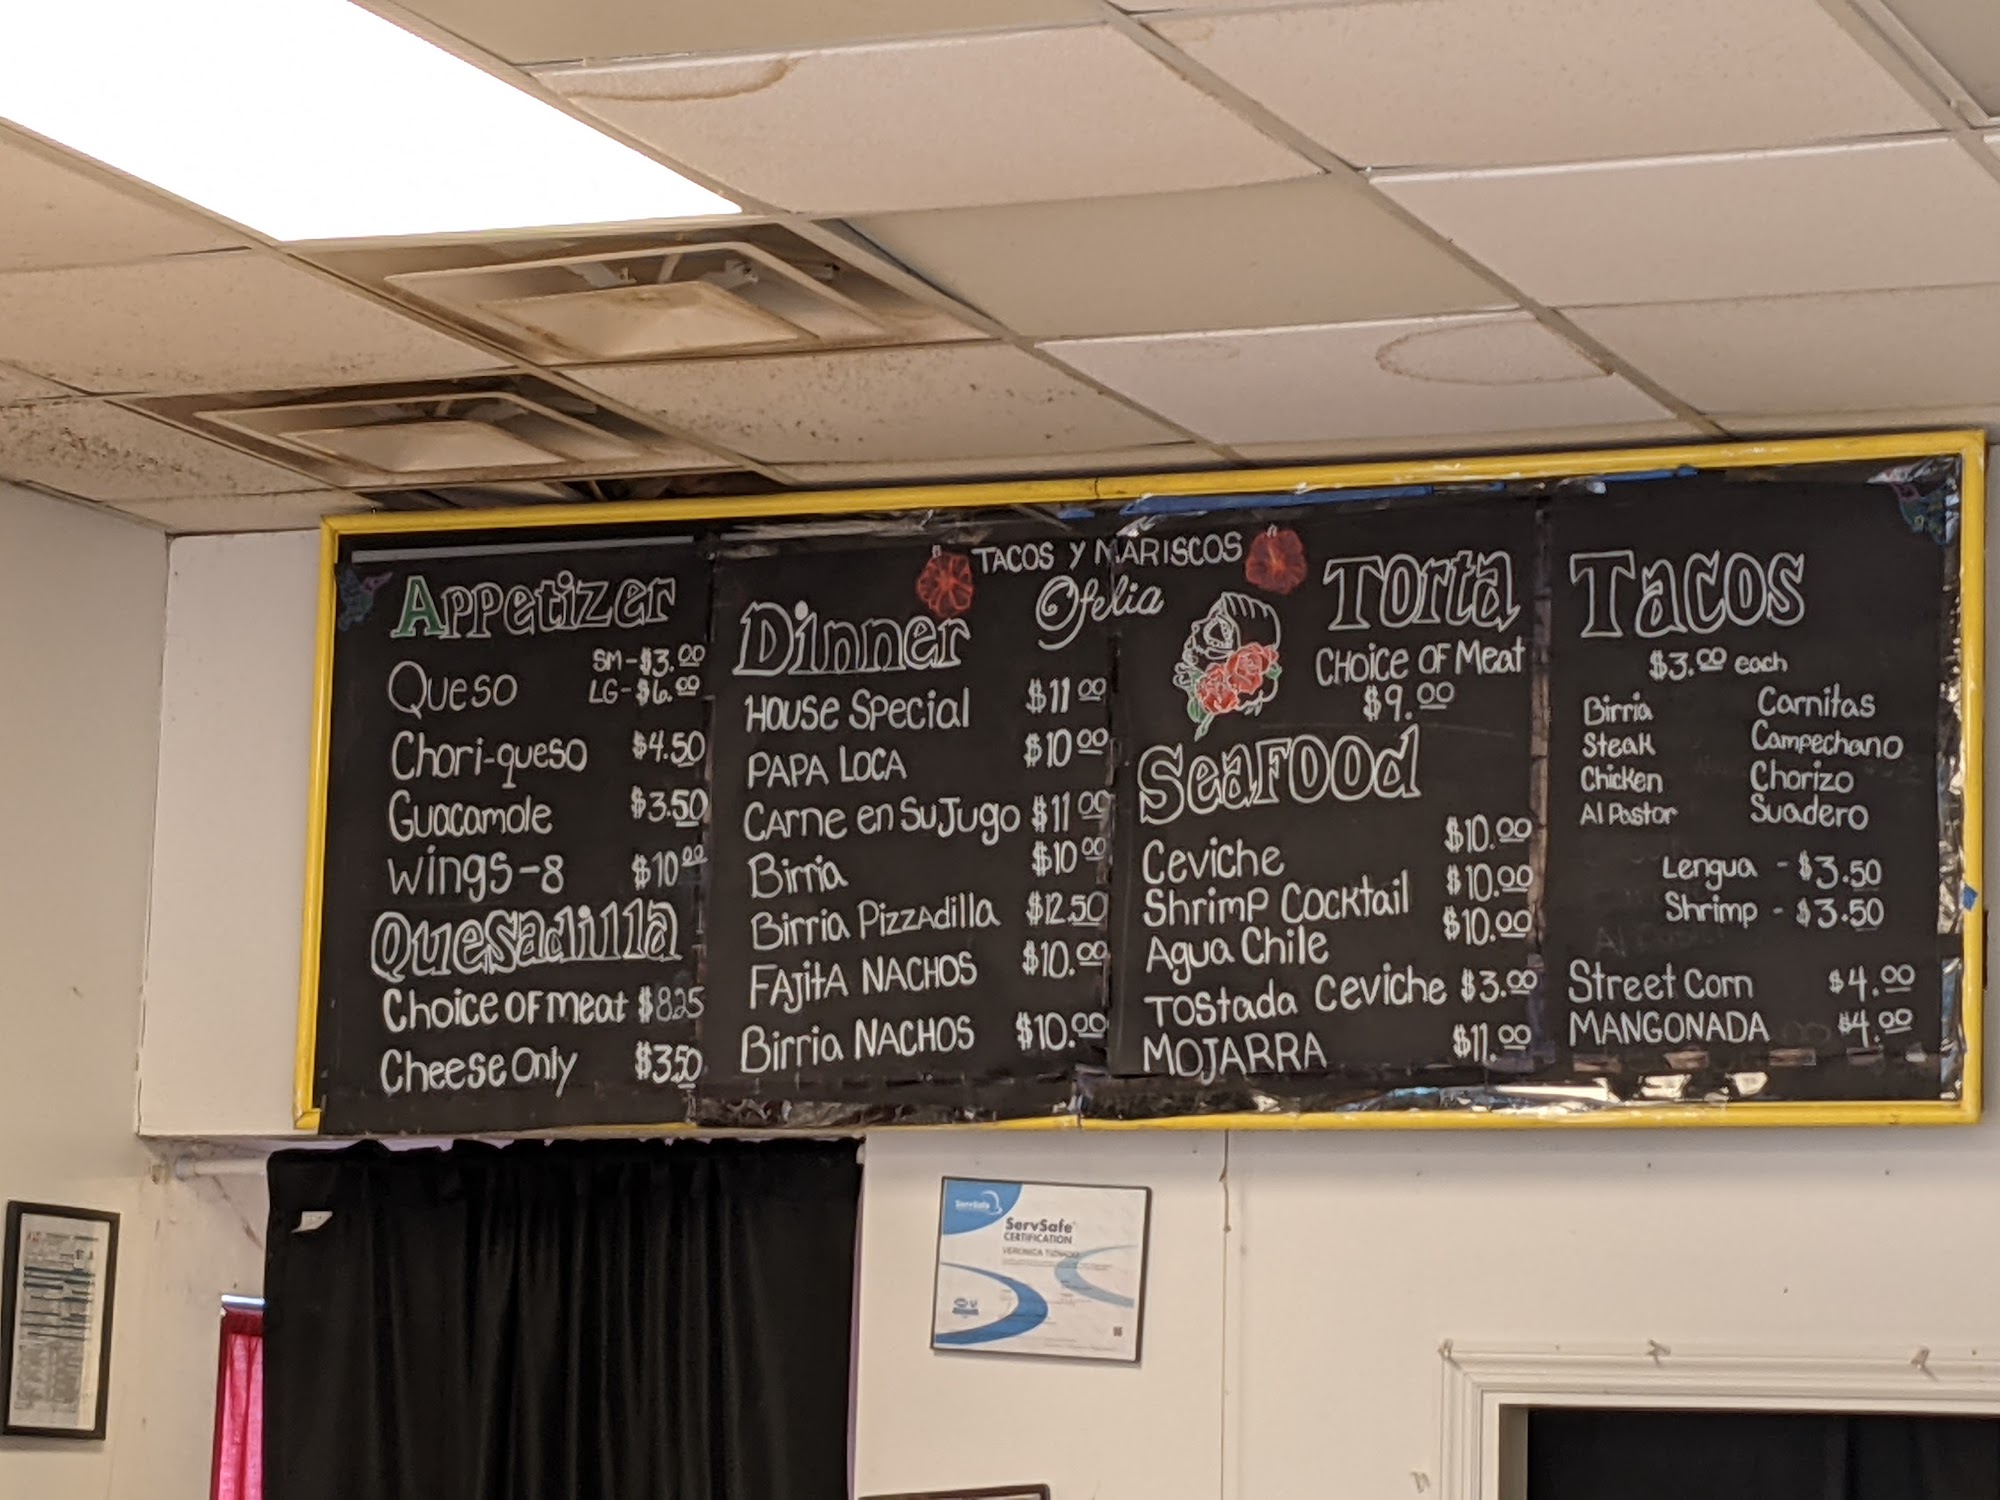 TACOS Y MARISCOS
Ofelia
Appetizer
Queso SM-$3.00
LG-$6.00
Chori-queso $4.50
Guacamole $3.50
Wings-8 $10.00
Quesadilla
Choice of meat $8.25
Cheese Only $3.50
Dinner
House Special $11.00
PAPA LOCA $10.00
Carne en Su Jugo $11.00
Birria $10.00
Birria Pizzadilla $12.50
Fajita NACHOS $10.00
Birria NACHOS $10.00
Torta
Choice of Meat
$9.00
Seafood
Ceviche $10.00
Shrimp Cocktail $10.00
Agua Chile $10.00
Tostada Ceviche $3.00
MOJARRA $11.00
Tacos
$3.00 each
Birria Carnitas
Steak Campechano
Chicken Chorizo
Al Pastor Suadero
Lengua - $3.50
Shrimp - $3.50
Street Corn $4.00
MANGONADA $4.00
ServSafe
ServSafe
CERTIFICATION
VERONICA